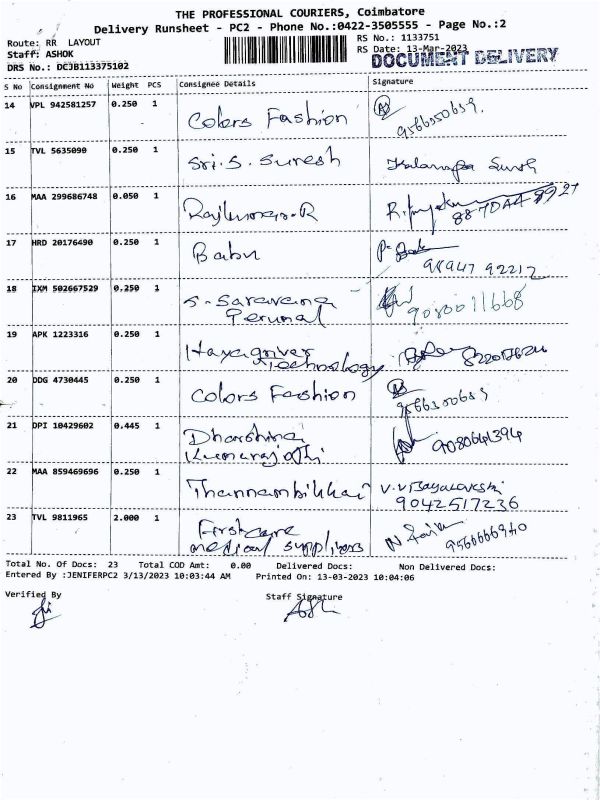 THE PROFESSIONAL COURIERS, Coimbatore
Delivery Runsheet - PC2 - Phone No.:0422-3505555 - Page No.:2
Route: RR LAYOUT
RS No.: 1133751
Staff: ASHOK
RS Date: 13-Mar-2023
DOCUMENT DELIVERY
DRS No.: DCJB113375102
S No Consignment No Weight PCS Consignee Details Signature
14 VPL 942581257 0.250 1 Colors Fashion
9566350659.
15 TVL 5635090 0.250 1 Sri. S. Suresh
16 MAA 299686748 0.050 1 Rajkumar.R
17 HRD 20176490 0.250 1 Babu
98947 92212
18 IXM 502667529 0.250 1 S. Saravana
Perumal
9080011668
19 APK 1223316 0.250 1 Hayagriver
Technology
20 DDG 4730445 0.250 1 Colors Fashion
21 DPI 10429602 0.445 1 Dharshina
Kumarajothi
9080641394
22 MAA 859469696 0.250 1 Thannambikkai V.V
9042517236
23 TVL 9811965 2.000 1 First care
medical suppliers
9566666940
Total No. Of Docs: 23 Total COD Amt: 0.00 Delivered Docs: Non Delivered Docs:
Entered By :JENIFERPC2 3/13/2023 10:03:44 AM Printed On: 13-03-2023 10:04:06
Verified By Staff Signature